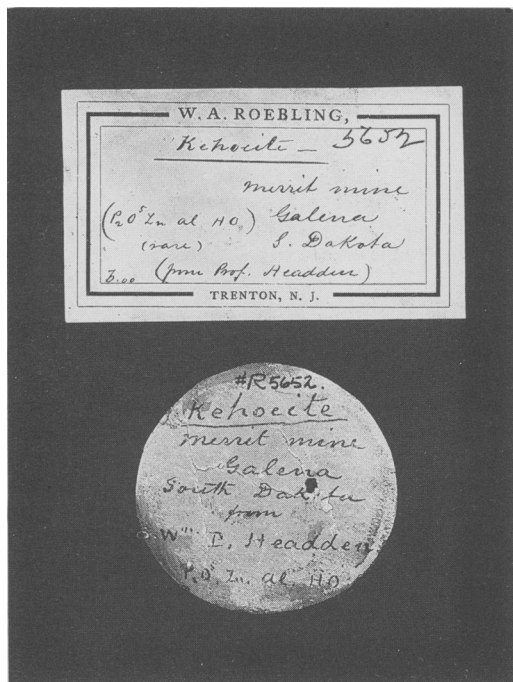 W. A. ROEBLING,
Kehoeite – 5652
Merrit mine
(P2O5 Zn al HO) Galena
(rare) S. Dakota
(from Prof. Headden)
TRENTON, N. J.
#R5652.
Kehoeite
Merrit mine
Galena
South Dakota
from
Wm P. Headden
P2O5 Zn. al. HO